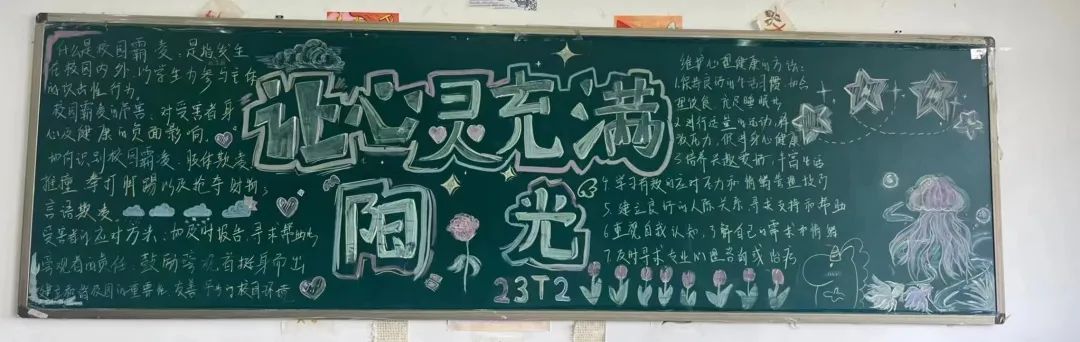 什么是校园霸凌：是指发生
在校园内外,以学生为参与主体
的攻击性行为。
校园霸凌的危害、对受害者身
心及健康的负面影响。
如何识别校园霸凌、肢体欺凌
推撞、拳打脚踢以及抢夺财物；
言语欺凌
受害者的应对方法、如及时报告,寻求帮助
旁观者的责任、鼓励旁观者挺身而出
建立和谐校园的重要性、友善
让心灵充满
阳光
23T2
维护心理健康的方法:
1.保持良好的生活习惯,如
理饮食、充足睡眠
2.进行适量的运动,释
放压力,促进身心健康
3.培养兴趣爱好,丰富生活
4.学习有效的应对压力和情绪管理技巧
5.建立良好的人际关系,寻求支持和帮助
6.重视自我认知,了解自己的需求和情绪
7.及时寻求专业心理咨询或治疗